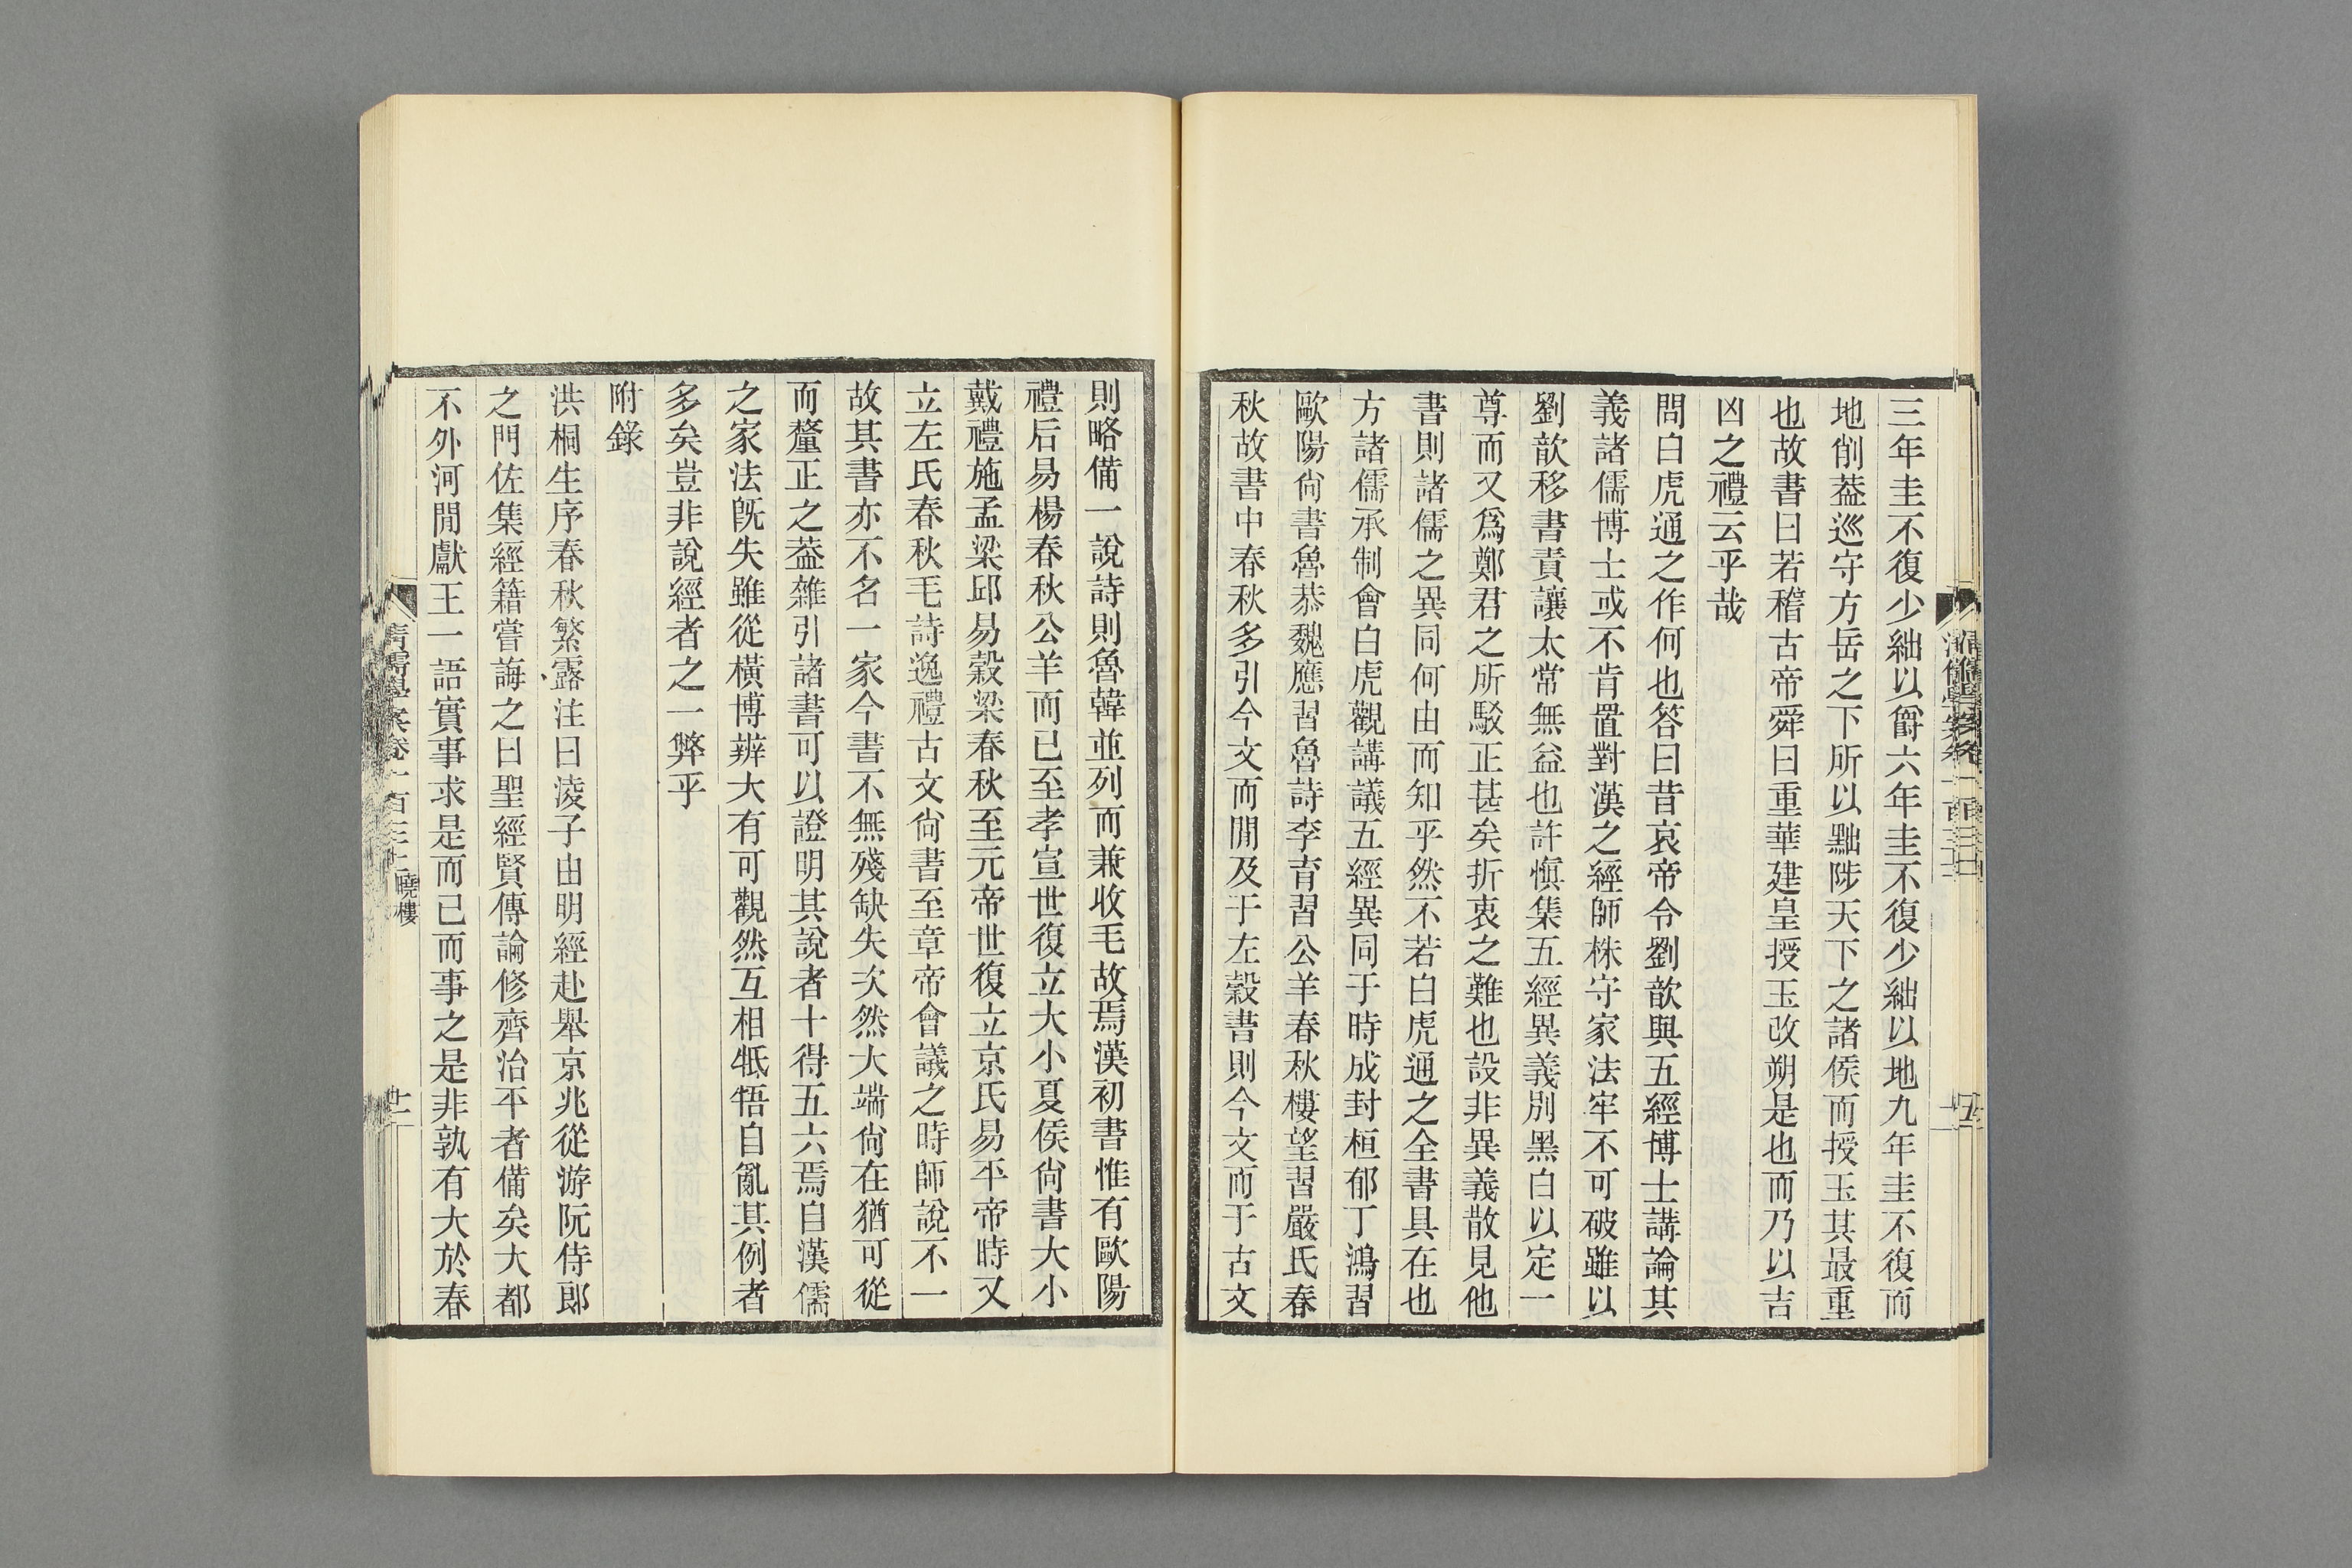 三年圭不復少絀以爵六年圭不復少絀以地九年圭不復而
地削葢巡守方岳之下所以黜陟天下之諸侯而授玉其最重
也故書曰若稽古帝舜曰重華建皇授玉改朔是也而乃以吉
凶之禮云乎哉
問白虎通之作何也答曰昔哀帝令劉歆與五經博士講論其
義諸儒博士或不肯置對漢之經師株守家法牢不可破雖以
劉歆移書責讓太常無益也許愼集五經異義別黑白以定一
尊而又爲鄭君之所駁正甚矣折衷之難也設非異義散見他
書則諸儒之異同何由而知乎然不若白虎通之全書具在也
方諸儒承制會白虎觀講議五經異同于時成封桓郁丁鴻習
歐陽尙書魯恭魏應習魯詩李育習公羊春秋樓望習嚴氏春
秋故書中春秋多引今文而閒及于左穀書則今文而于古文
則略備一說詩則魯韓並列而兼收毛故焉漢初書惟有歐陽
禮后易楊春秋公羊而已至孝宣世復立大小夏侯尙書大小
戴禮施孟梁邱易穀梁春秋至元帝世復立京氏易平帝時又
立左氏春秋毛詩逸禮古文尙書至章帝會議之時師說不一
故其書亦不名一家今書不無殘缺失次然大端尙在猶可從
而釐正之葢雜引諸書可以證明其說者十得五六焉自漢儒
之家法旣失雖從橫博辨大有可觀然互相牴牾自亂其例者
多矣豈非說經者之一弊乎
附錄
洪桐生序春秋繁露注曰淩子由明經赴舉京兆從游阮侍郞
之門佐集經籍嘗誨之曰聖經賢傳論修齊治平者備矣大都
不外河閒獻王一語實事求是而已而事之是非孰有大於春
清儒學案卷一百三十一 曉樓